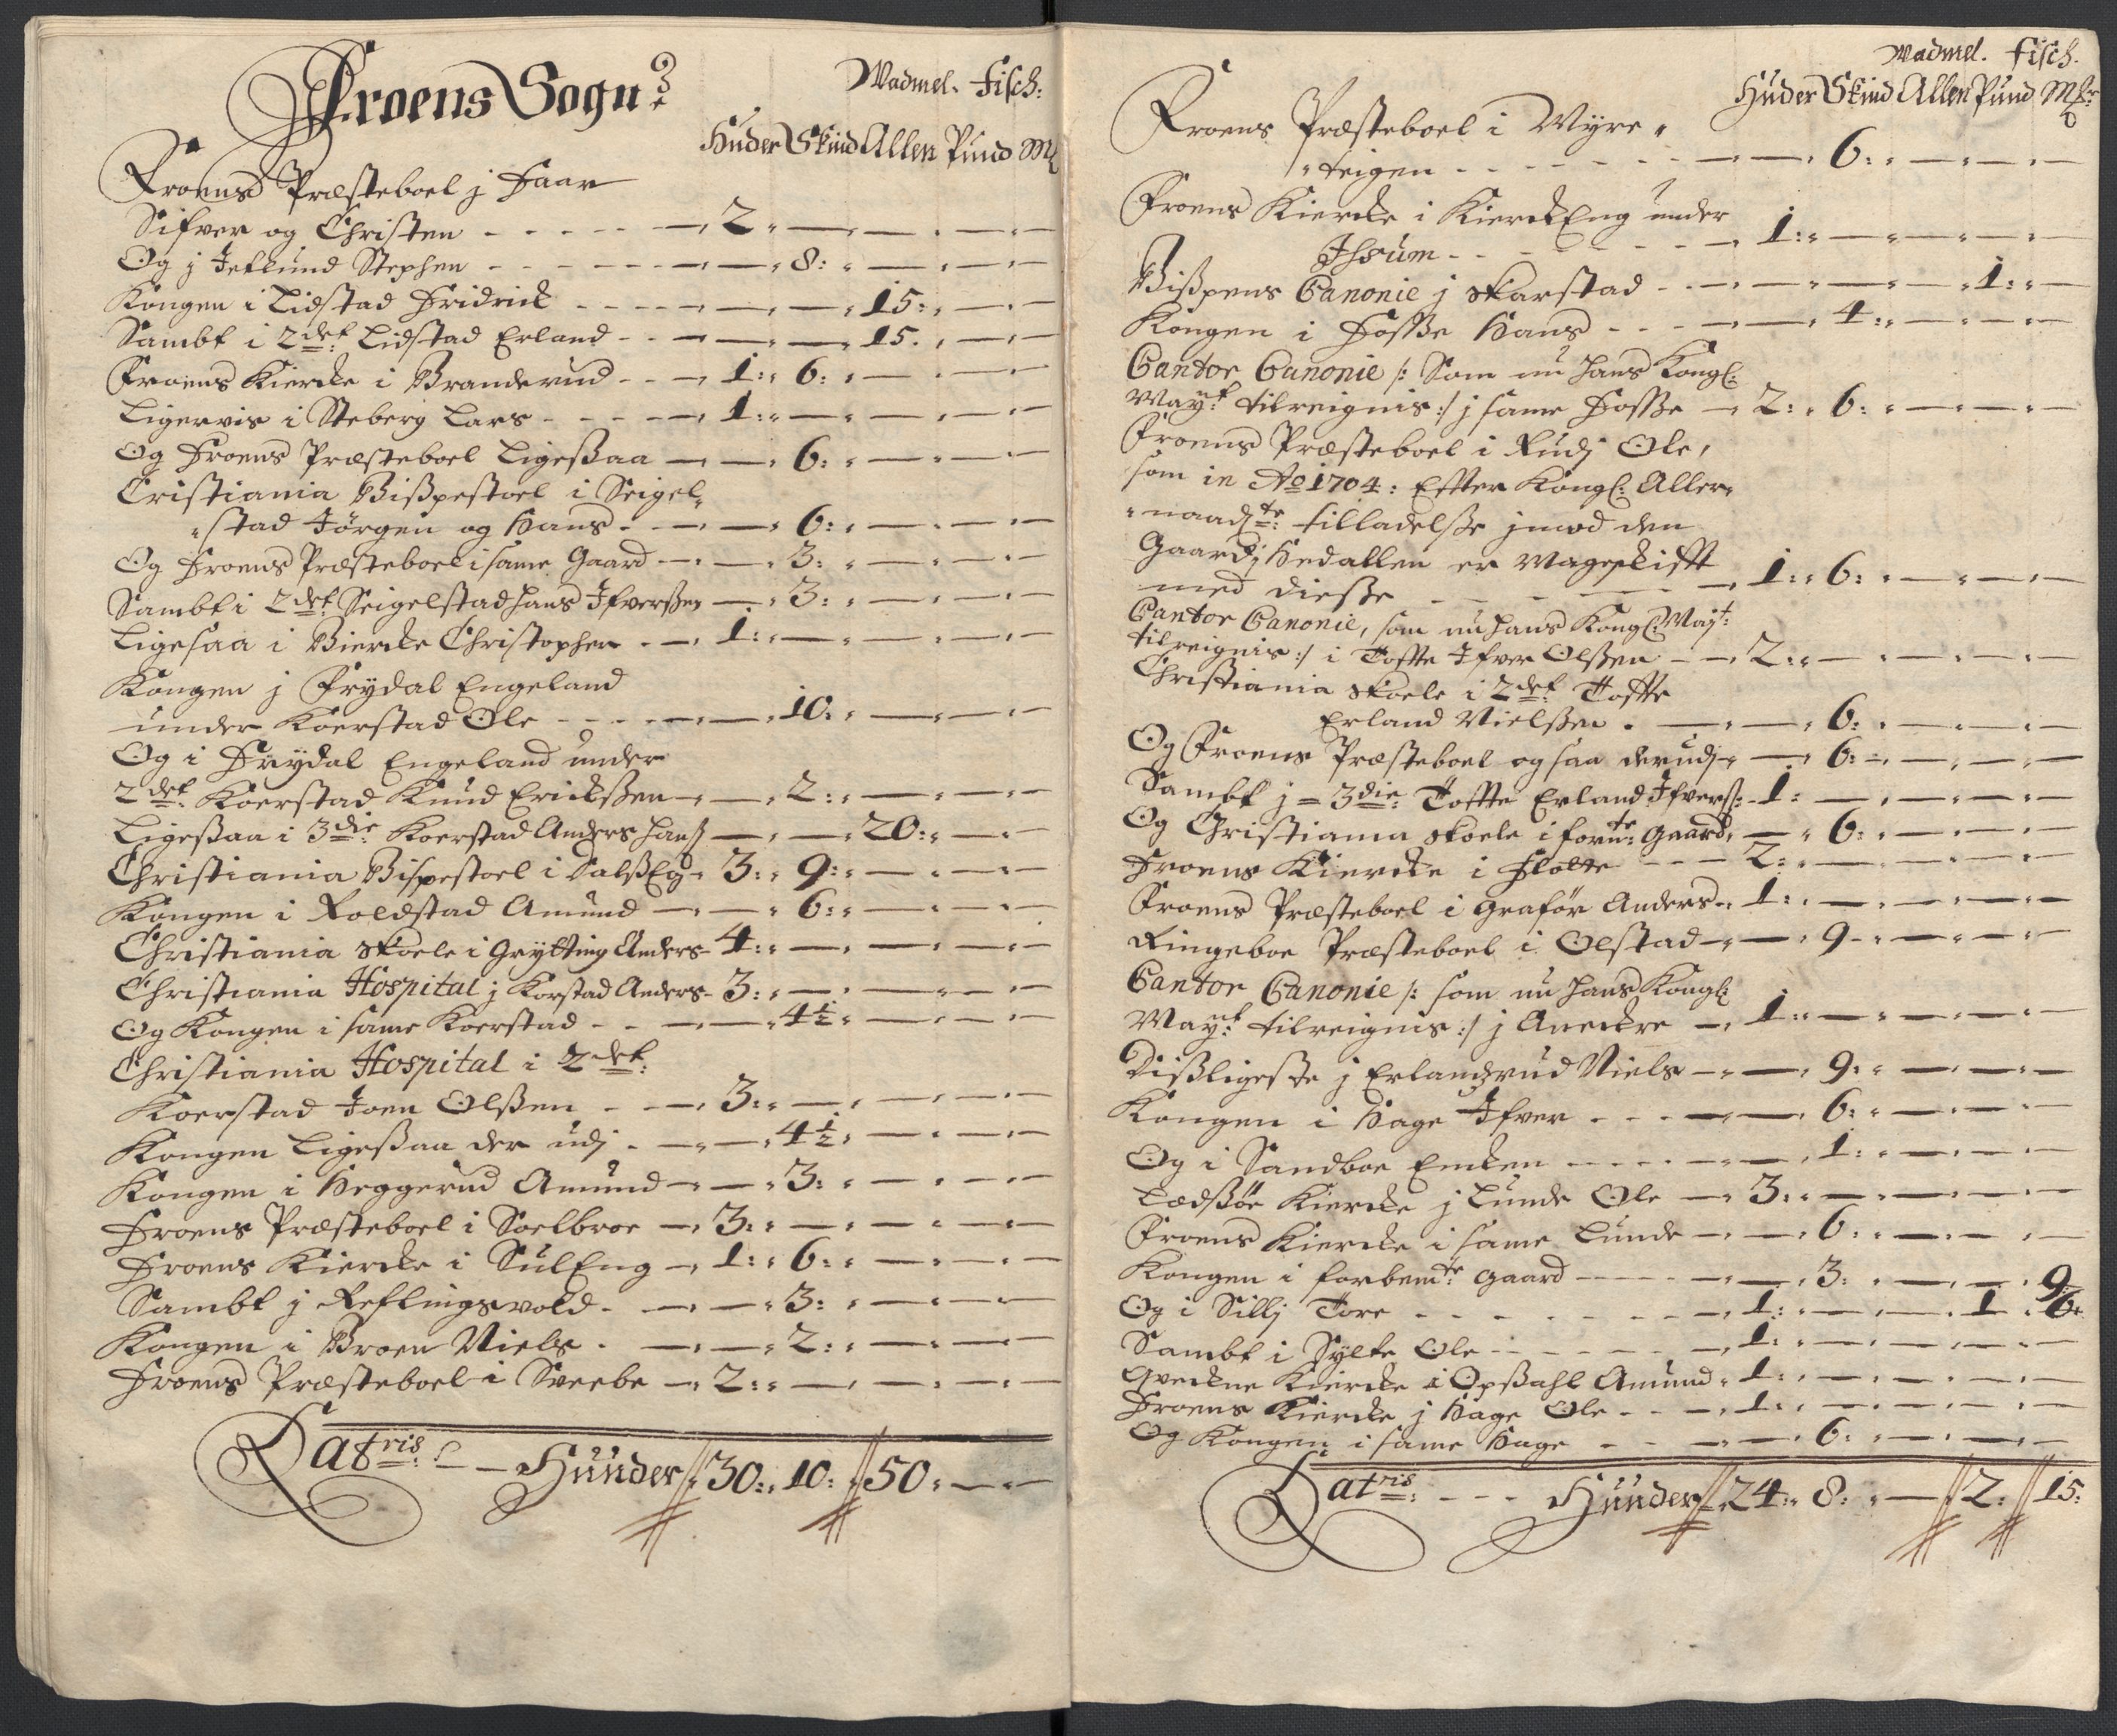 Froens Sogn
Wadmel. Fisch:
Huder Skind Allen Pund Mk
Froens Præsteboel j Haar
Sifver og Christen - - - - 2
Og j Jetlund Stephen - - - - 8:
Kongen i Lidstad Fridrick - - - - 15:
Sambt i 2det: Lidstad Erland - - 15.
Froens Kiercke i Branderud - - 1: 6:
Ligervis i Steberg Lars - - - - 1:
Og Froens Præsteboel Ligeßaa 6:
Cristiania Bißpestoel i Seigel-
stad Jørgen og Hans - - 6:
Og Froens Præsteboel i same Gaard 3:
Sambt i 2det Seigelstad Hans Ifverßen 3:
Ligesaa i Biercke Christopher - 1:
Kongen j Frydal Engeland
under Koerstad Ole - - - - 10:
Og i Frydal Engeland under
2det: Koerstad Knud Erickßen 2:
Ligeßaa i 3die Koerstad Anders Hanß 20:
Christiania Bispestoel i DalßEg 3: 9:
Kongen i Roldstad Amund 6:
Christiania Skoele i Grytting Anders 4:
Christiania Hospital j Korstad Anders 3:
Og Kongen i same Koerstad - - 4½
Christiania Hospital i 2det:
Koerstad Joen Olßen - - 3:
Kongen Ligeßaa der udj - 4½
Kongen i Heggerud Amund 3:
Froens Præsteboel i Soelbroe 3:
Froens Kiercke i SulEng 1: 6:
Sambt j Reflingsvold - 3:
Kongen i Broen Niels - 2:
Froens Præsteboel i Sveebe 2:
Latris: - Hunder 30: 10: 50:
Wadmel. Fisch.
Huder Skind Allen Pund Mkr
Froens Præsteboel i Myre-
teigen - - - - 6:
Froens Kiercke i KierckEng under
Ihrum - - - 1:
Bißpens Canonie j Skarstad - - 1:
Kongen i Foße Hans - - - 4:
Cantor Canonie /: Som nu Hans Kongl:
Mayt: tilreignis :/ j same Foße 2: 6:
Froens Præsteboel i Rudj Ole,
som in Ao 1704: Efter Kongl: Aller-
naadte: tilladelße jmod den
Gaard j Hedallen er Mageskifft
med dieße - - - 1: 6:
Cantor Canonie, som nu Hans Kongl: Mayt:
tilreignis :/ i Tofte Ifver Olßen - 2:
Christiania Skoele i 2det Tofte
Erland Nielßen - 6:
Og Froens Præsteboel og saa derudj 6:
Sambt j = 3die: Tofte Erland Ifverß: 1:
Og Christiania Skoele i fornte: Gaard, 6:
Froens Kiercke i Flotte - - - 2:
Froens Præsteboel i Grafør Anders 1:
Ringeboe Præsteboel i Olstad 9
Cantor Canonie /: som nu Hans Kongl:
Mayt tilreignis :/ j Aneckre 1:
Dißligeste j Erlandzrud Niels 9:
Kongen i Hage Ifver - - - 6:
Og i Sandboe Encken - - - - 1:
Lædßøe Kiercke j Lunde Ole 3:
Froens Kiercke i same Lunde 6:
Kongen i forbemte Gaard - - - 3: 9
Og i Sillj Tore - - - - 1: 1 6:
Sambt i Sylte Ole - - - - 1:
Qveckne Kiercke i Opßahl Amund 1:
Froens Kiercke j Hage Ole - - 1:
Og Kongen i same Hage - - 6:
Latris: - - - Hunder 24: 8: 2: 15: